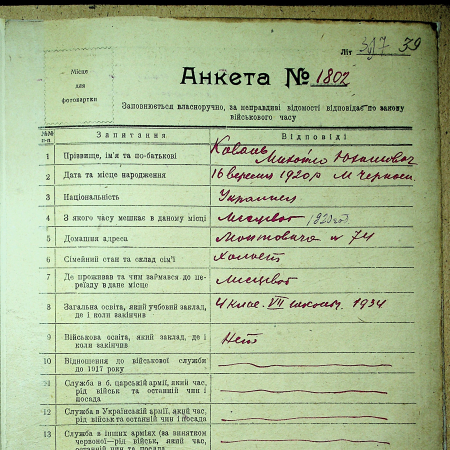 Літ 317 39
Місце
для
фотокартки
Анкета № 1802
Заповнюється власноручно, за неправдиві відомості відповідає по закону
військового часу
№№
п-п
Запитання
Відповіді
1 Прізвище, ім'я та по-батькові Коваль
Михайло
2 Дата та місце народження 16 вересня 1920 р М
3 Національність Украинец
4 З якого часу мешкає в даному місці 1920 год.
5 Домашня адреса № 74
6 Сімейний стан та склад сім'ї Холост
7 Де проживав та чим займався до пе-
реїзду в дане місце
8 Загальна освіта, який учбовий заклад,
де і коли закінчив 4 клас. VII 1934
9 Військова освіта, який заклад, де і
коли закінчив Нет
10 Відношення до військової служби
до 1917 року
11 Служба в б. царській армії, який час,
рід військ та останній чин і
посада
12 Служба в Українській армії, який час,
рід військ та останній чин і посада
13 Служба в інших арміях (за винятком
червоної—рід військ, який час,
останній чин та посада